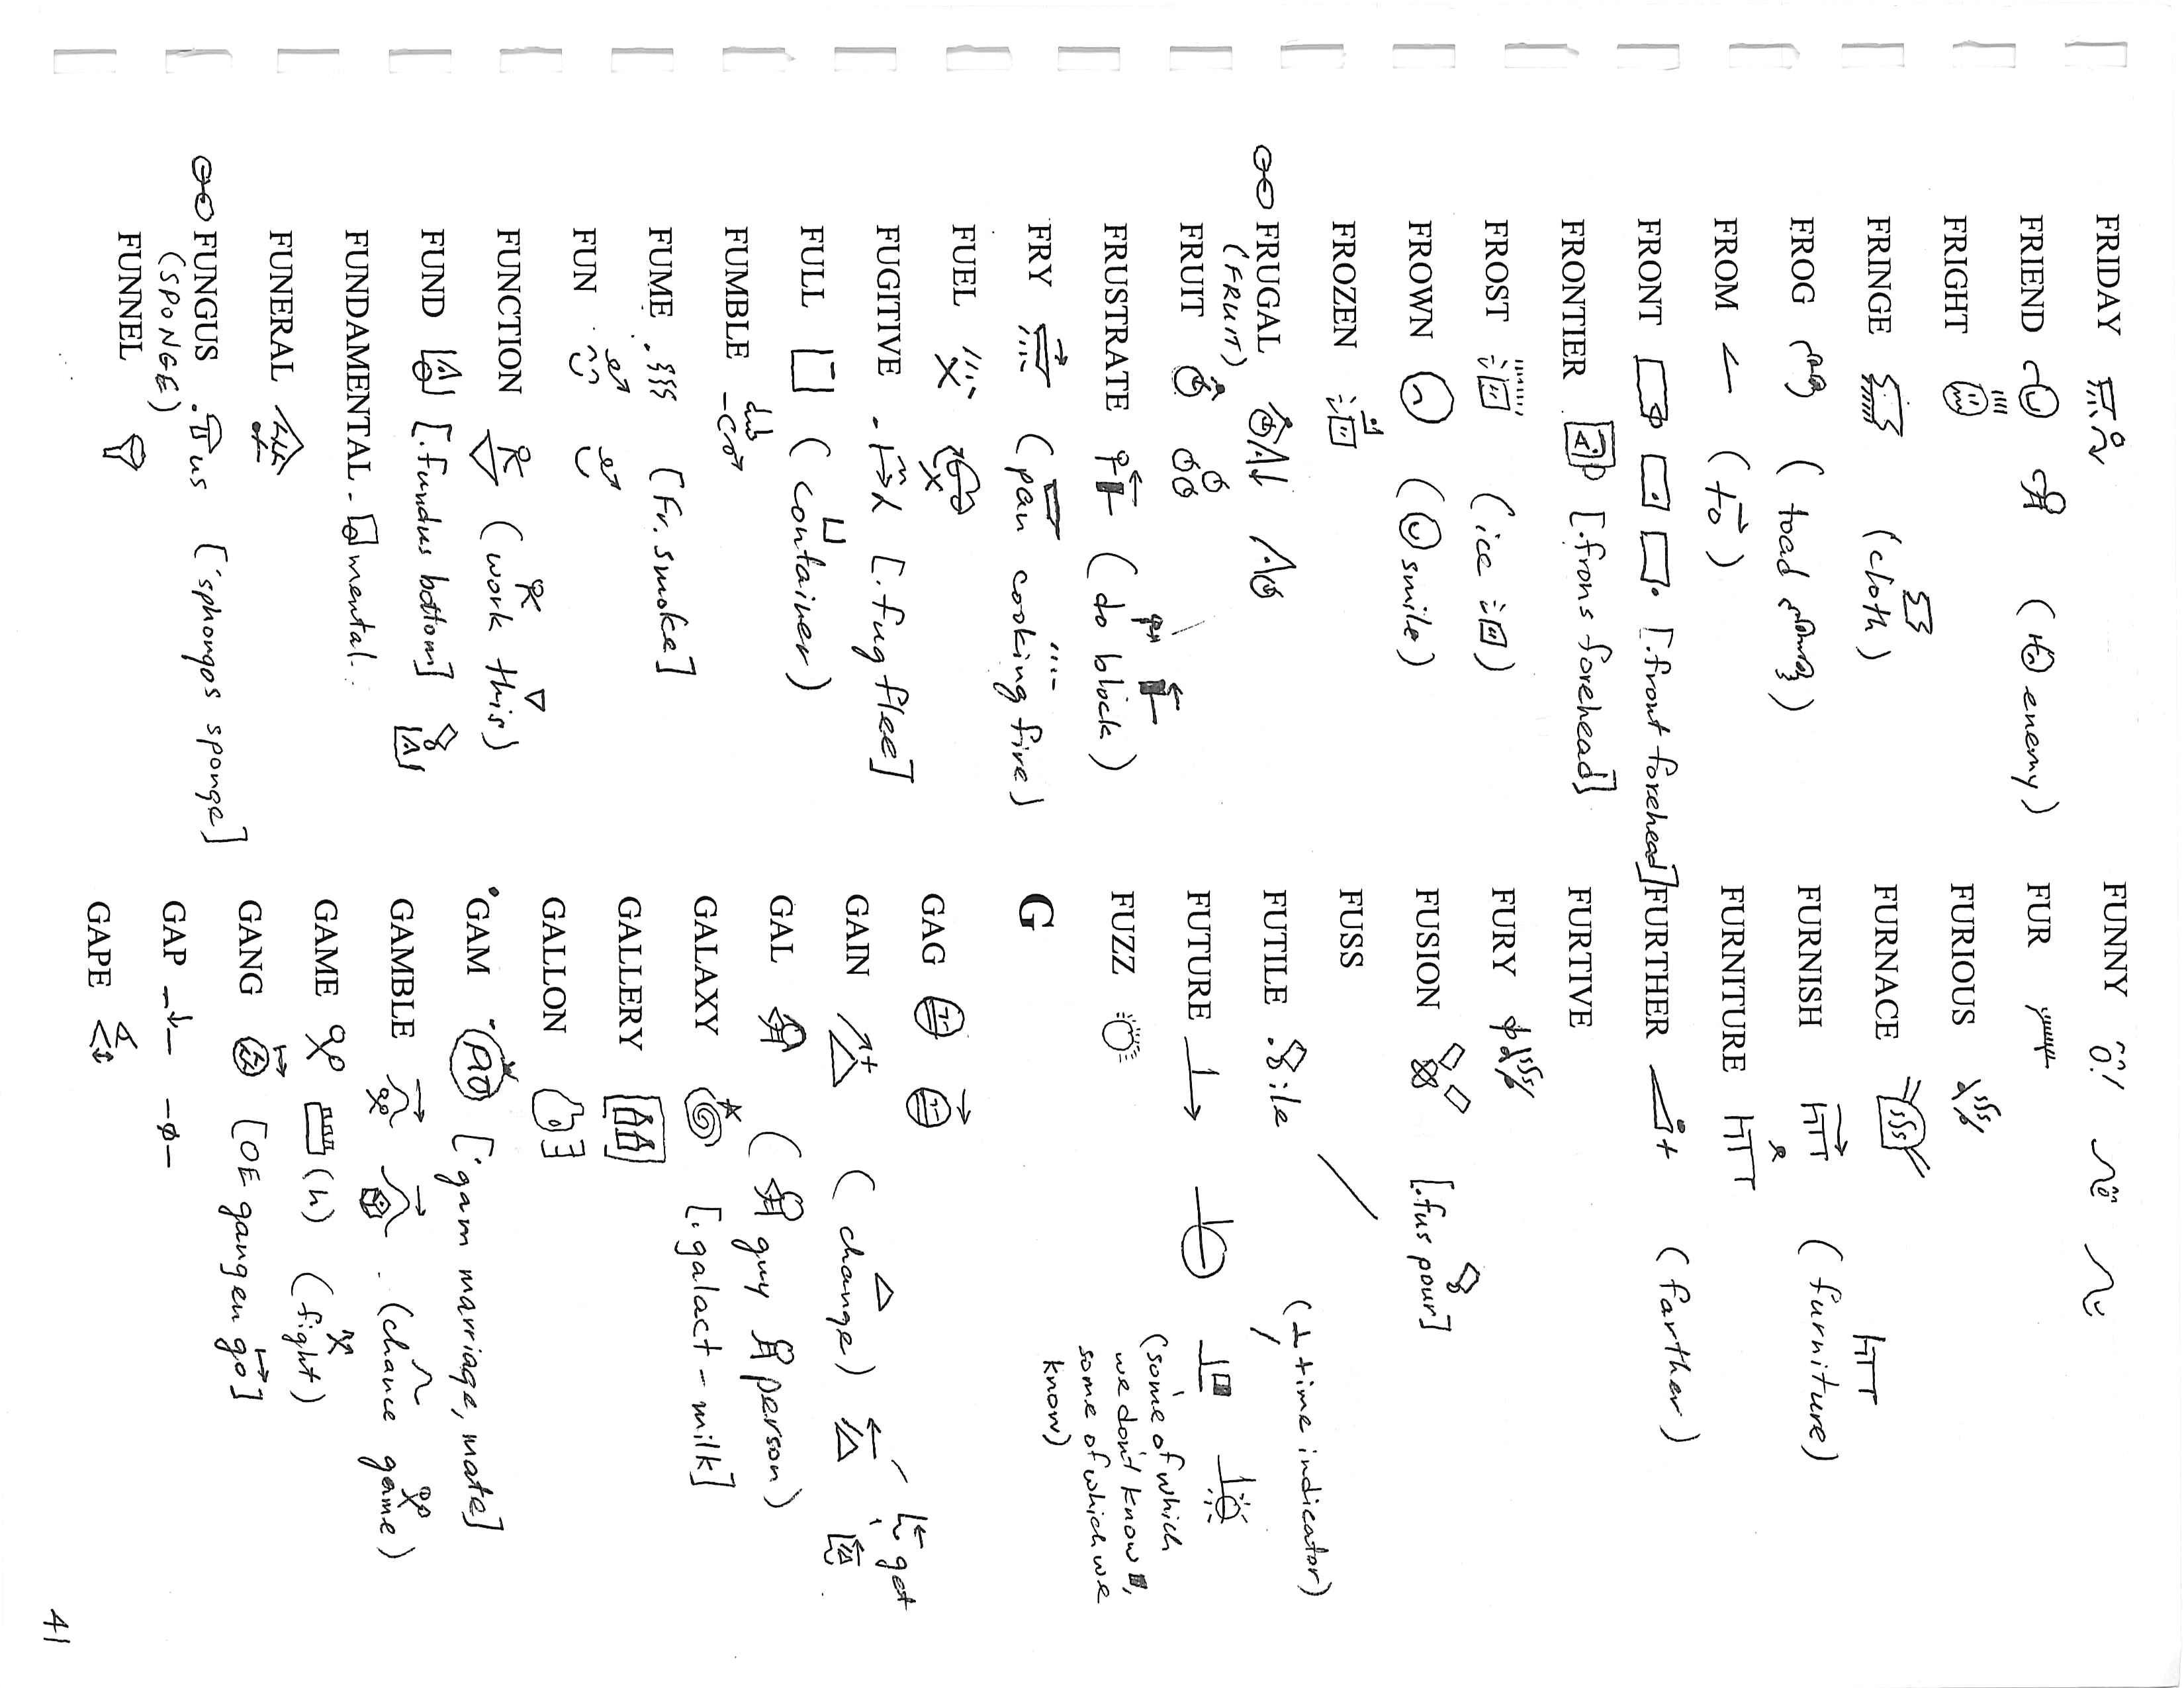 FRIDAY
FRIEND (enemy)
FRIGHT
FRINGE (cloth)
FROG (toad)
FROM (to)
FRONT [.front forehead]
FRONTIER [.frons forehead]
FROST (ice)
FROWN (smile)
FROZEN
FRUGAL
(FRUIT)
FRUIT
FRUSTRATE (do block)
FRY (pan cooking fire)
FUEL
FUGITIVE [.fug flee]
FULL (container)
FUMBLE
FUME [Fr. smoke]
FUN
FUNCTION (work this)
FUND [.fundus bottom]
FUNDAMENTAL mental
FUNERAL
FUNGUS us ['sphongos sponge]
(SPONGE)
FUNNEL
FUNNY
FUR
FURIOUS
FURNACE
FURNISH (furniture)
FURNITURE
FURTHER (farther)
FURTIVE
FURY
FUSION [.fus pour]
FUSS
FUTILE ile
(time indicator)
FUTURE
(some of which
we don't know,
some of which we
know)
FUZZ
G
GAG
GAIN (change) get
GAL (guy person)
GALAXY [.galact-milk]
GALLERY
GALLON
GAM ['gam marriage, mate]
GAMBLE (chance game)
GAME (h) (fight)
GANG [OE gangen go]
GAP
GAPE
41